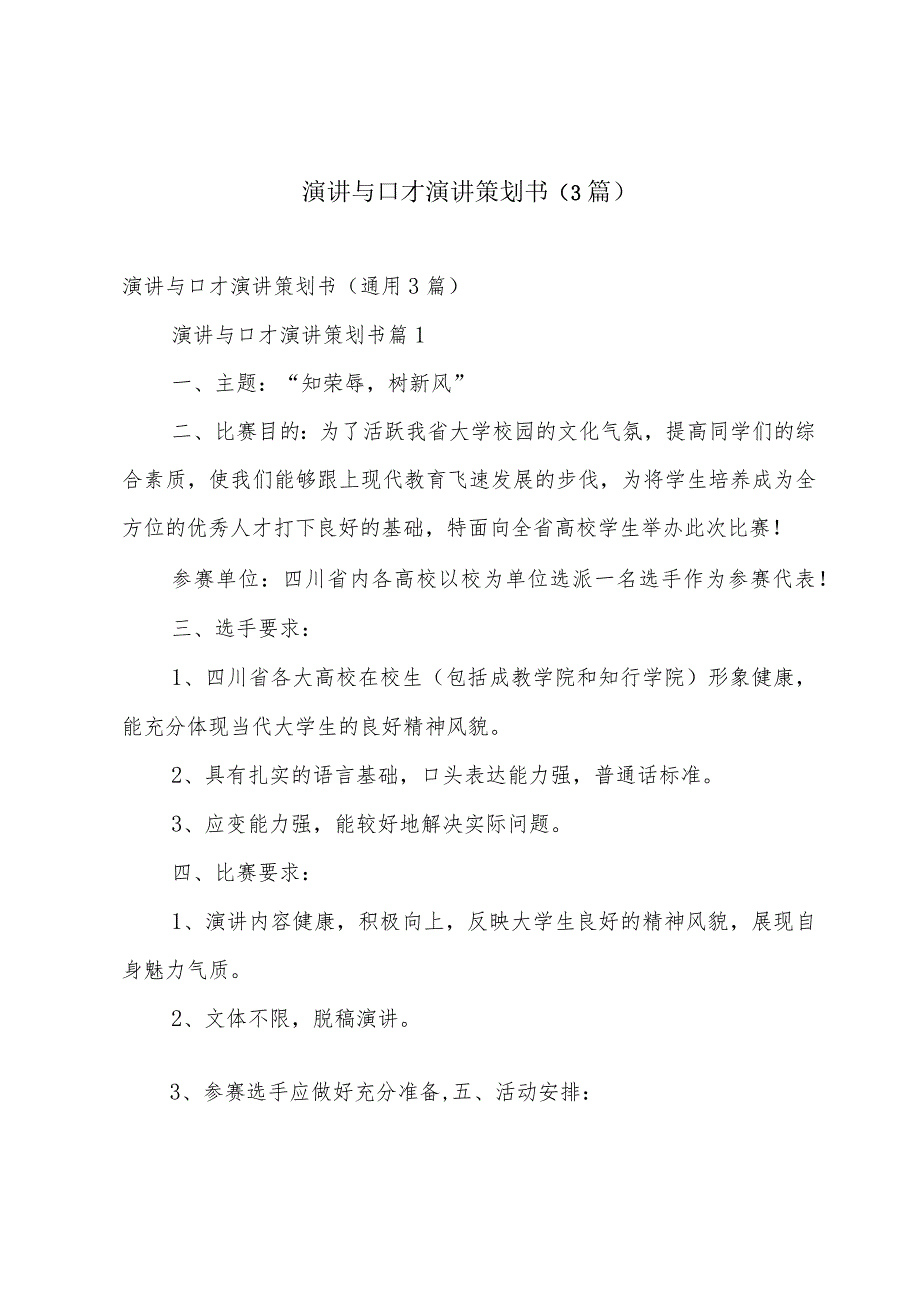 演讲与口才演讲策划书（3篇）
演讲与口才演讲策划书（通用3篇）
演讲与口才演讲策划书篇1
一、主题：“知荣辱，树新风”
二、比赛目的：为了活跃我省大学校园的文化气氛，提高同学们的综
合素质，使我们能够跟上现代教育飞速发展的步伐，为将学生培养成为全
方位的优秀人才打下良好的基础，特面向全省高校学生举办此次比赛！
参赛单位：四川省内各高校以校为单位选派一名选手作为参赛代表！
三、选手要求：
1、四川省各大高校在校生（包括成教学院和知行学院）形象健康，
能充分体现当代大学生的良好精神风貌。
2、具有扎实的语言基础，口头表达能力强，普通话标准。
3、应变能力强，能较好地解决实际问题。
四、比赛要求：
1、演讲内容健康，积极向上，反映大学生良好的精神风貌，展现自
身魅力气质。
2、文体不限，脱稿演讲。
3、参赛选手应做好充分准备,五、活动安排：